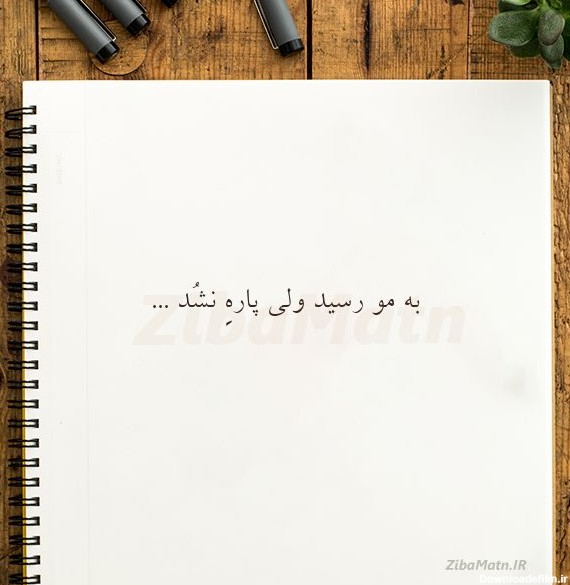 به مو رسید ولی پارهِ نشُد ...
ZibaMatn
ZibaMatn.IR
Downloadefilm.ir